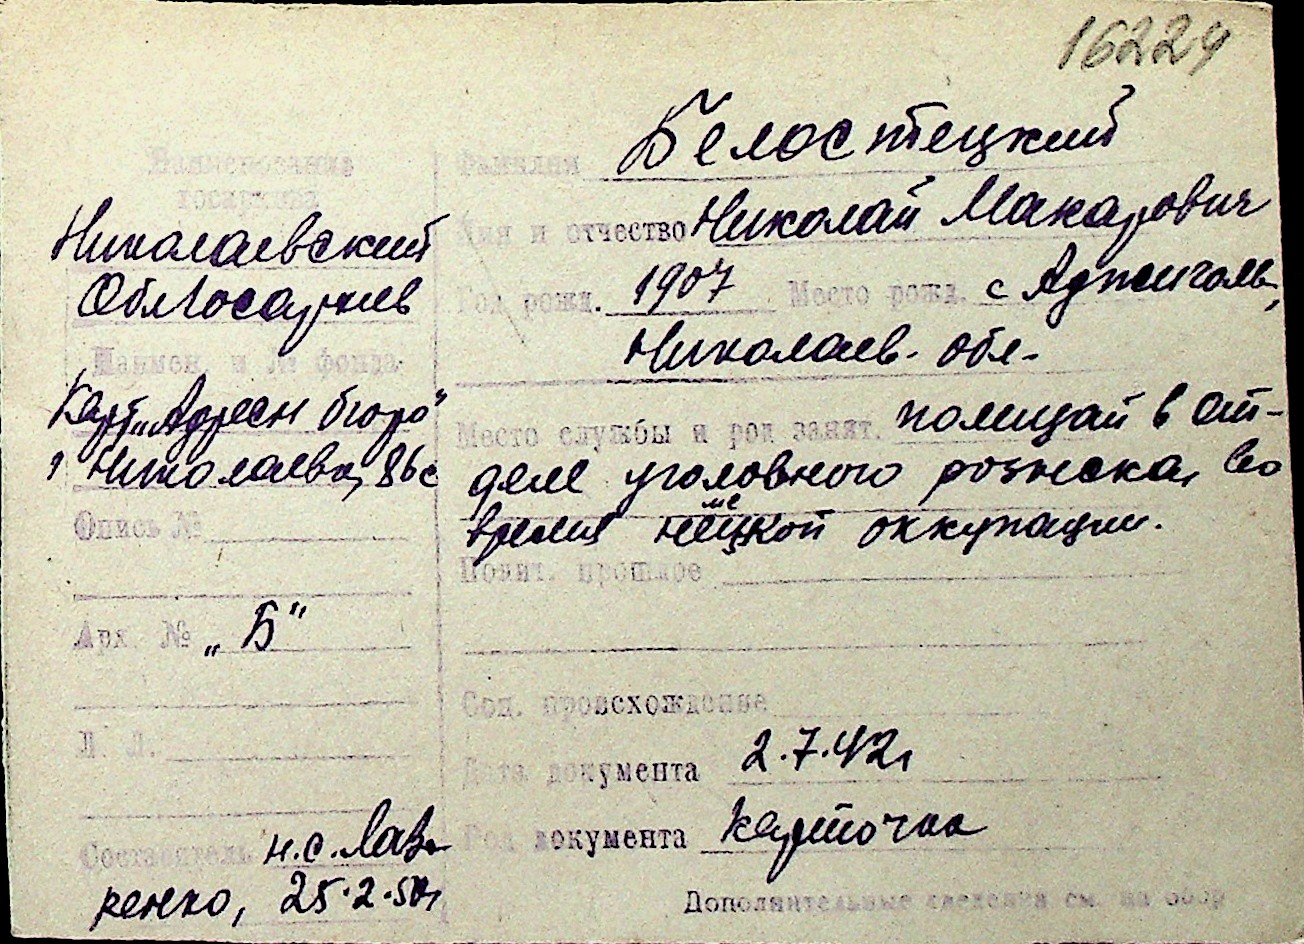 16224
Наименование
госархива
Николаевский
Облгосархив
Наимен. и № фонда
Карт. „Адресн бюро"
г Николаева, 86с
Опись №
Арх. № „Б"
Л. Л.
Составитель н.с. Лав-
ренко, 25.2.50г
Фамилия Белостецкий
Имя и отчество Николай Макарович
Год рожд. 1907 Место рожд. с Аджиголь,
Николаев. обл.
Место службы и род занят. полицай в от-
деле уголовного розыска, во
время немецкой оккупации.
Полит. прошлое
Соц. происхождение
Дата документа 2.7.42г
Род документа карточка
Дополнительные сведения см. на обор